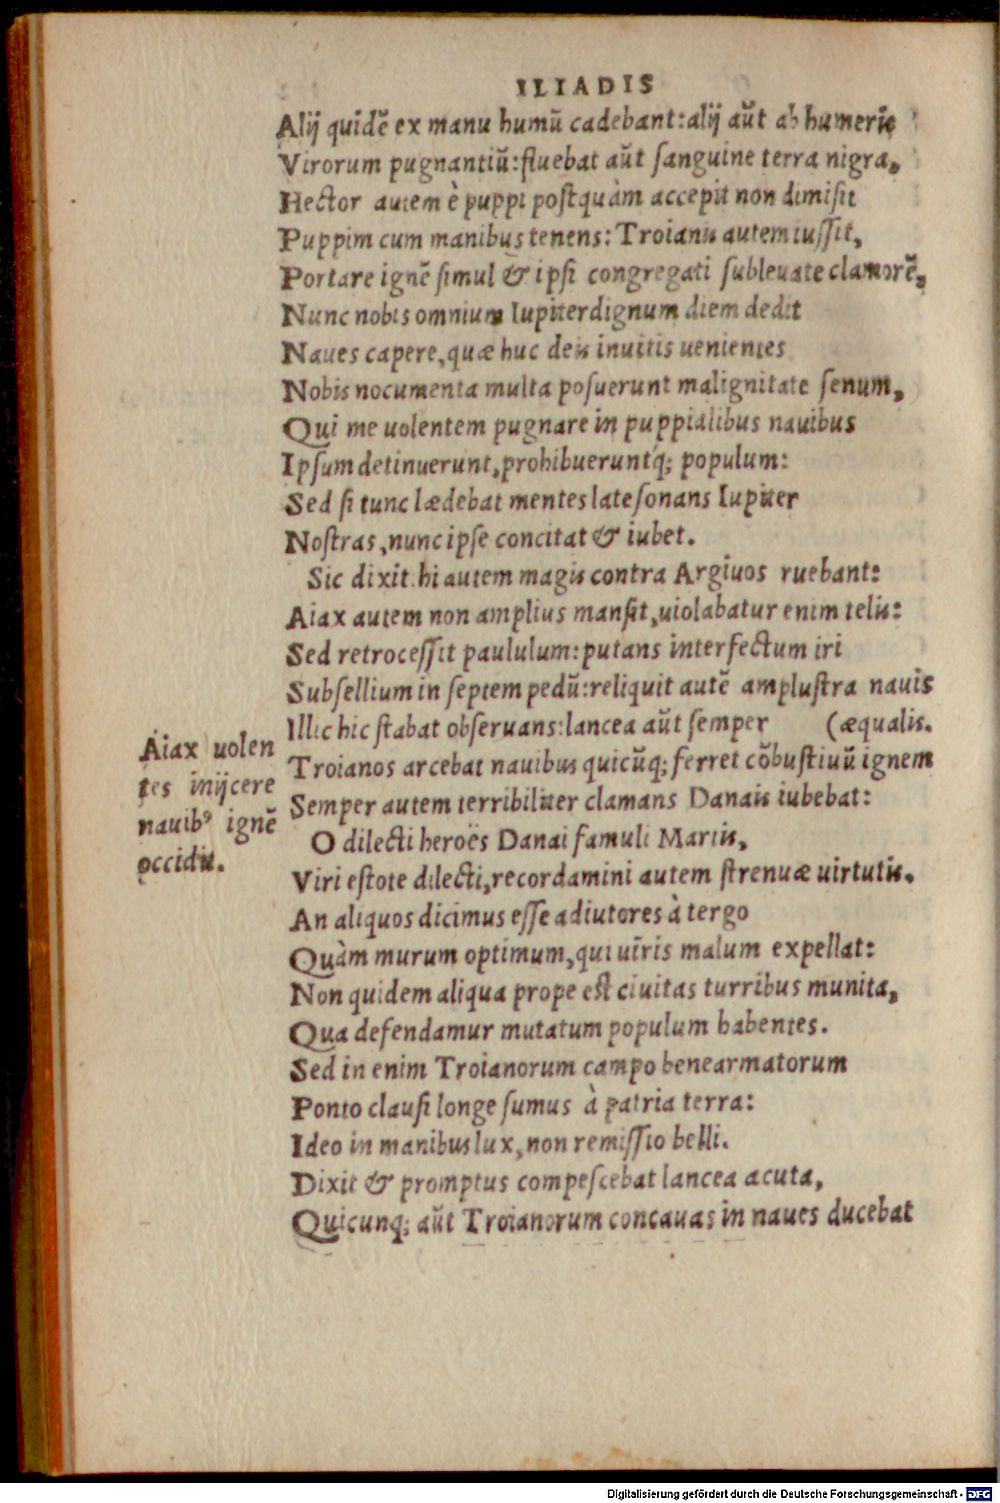 ILIADIS
Alij quidē ex manu humū cadebant: alij aūt ab humeris
Virorum pugnantiū: fluebat aūt ſanguine terra nigra,
Hector autem è puppi poſtquàm accepit non dimiſit
Puppim cum manibus tenens: Troianis autem iuſſit,
Portare ignē ſimul & ipſi congregati ſubleuate clamorē,
Nunc nobis omnium Iupiter dignum diem dedit
Naues capere, quæ huc deis inuitis uenientes
Nobis nocumenta multa poſuerunt malignitate ſenum,
Qui me uolentem pugnare in puppialibus nauibus
Ipſum detinuerunt, prohibueruntq́; populum:
Sed ſi tunc lædebat mentes late ſonans Iupiter
Noſtras, nunc ipſe concitat & iubet.
Sic dixit. hi autem magis contra Argiuos ruebant:
Aiax autem non amplius manſit, uiolabatur enim telis:
Sed retroceſſit paululum: putans interfectum iri
Subſellium in ſeptem pedū: reliquit autē ampluſtra nauis
Illic hic ſtabat obſeruans: lancea aūt ſemper (æqualis.
Troianos arcebat nauibus quicūq; ferret cōbuſtiuū ignem
Semper autem terribiliter clamans Danais iubebat:
O dilecti heroës Danai famuli Martis,
Viri eſtote dilecti, recordamini autem ſtrenuæ uirtutis.
An aliquos dicimus eſſe adiutores à tergo
Quàm murum optimum, qui uīris malum expellat:
Non quidem aliqua prope eſt ciuitas turribus munita,
Qua defendamur mutatum populum habentes.
Sed in enim Troianorum campo bene armatorum
Ponto clauſi longe ſumus à patria terra:
Ideo in manibus lux, non remiſſio belli.
Dixit & promptus compeſcebat lancea acuta,
Quicunq; aūt Troianorum concauas in naues ducebat
Aiax uolen
tes inijcere
nauibꝰ ignē
occidit.
Digitalisierung gefördert durch die Deutsche Forschungsgemeinschaft - DFG